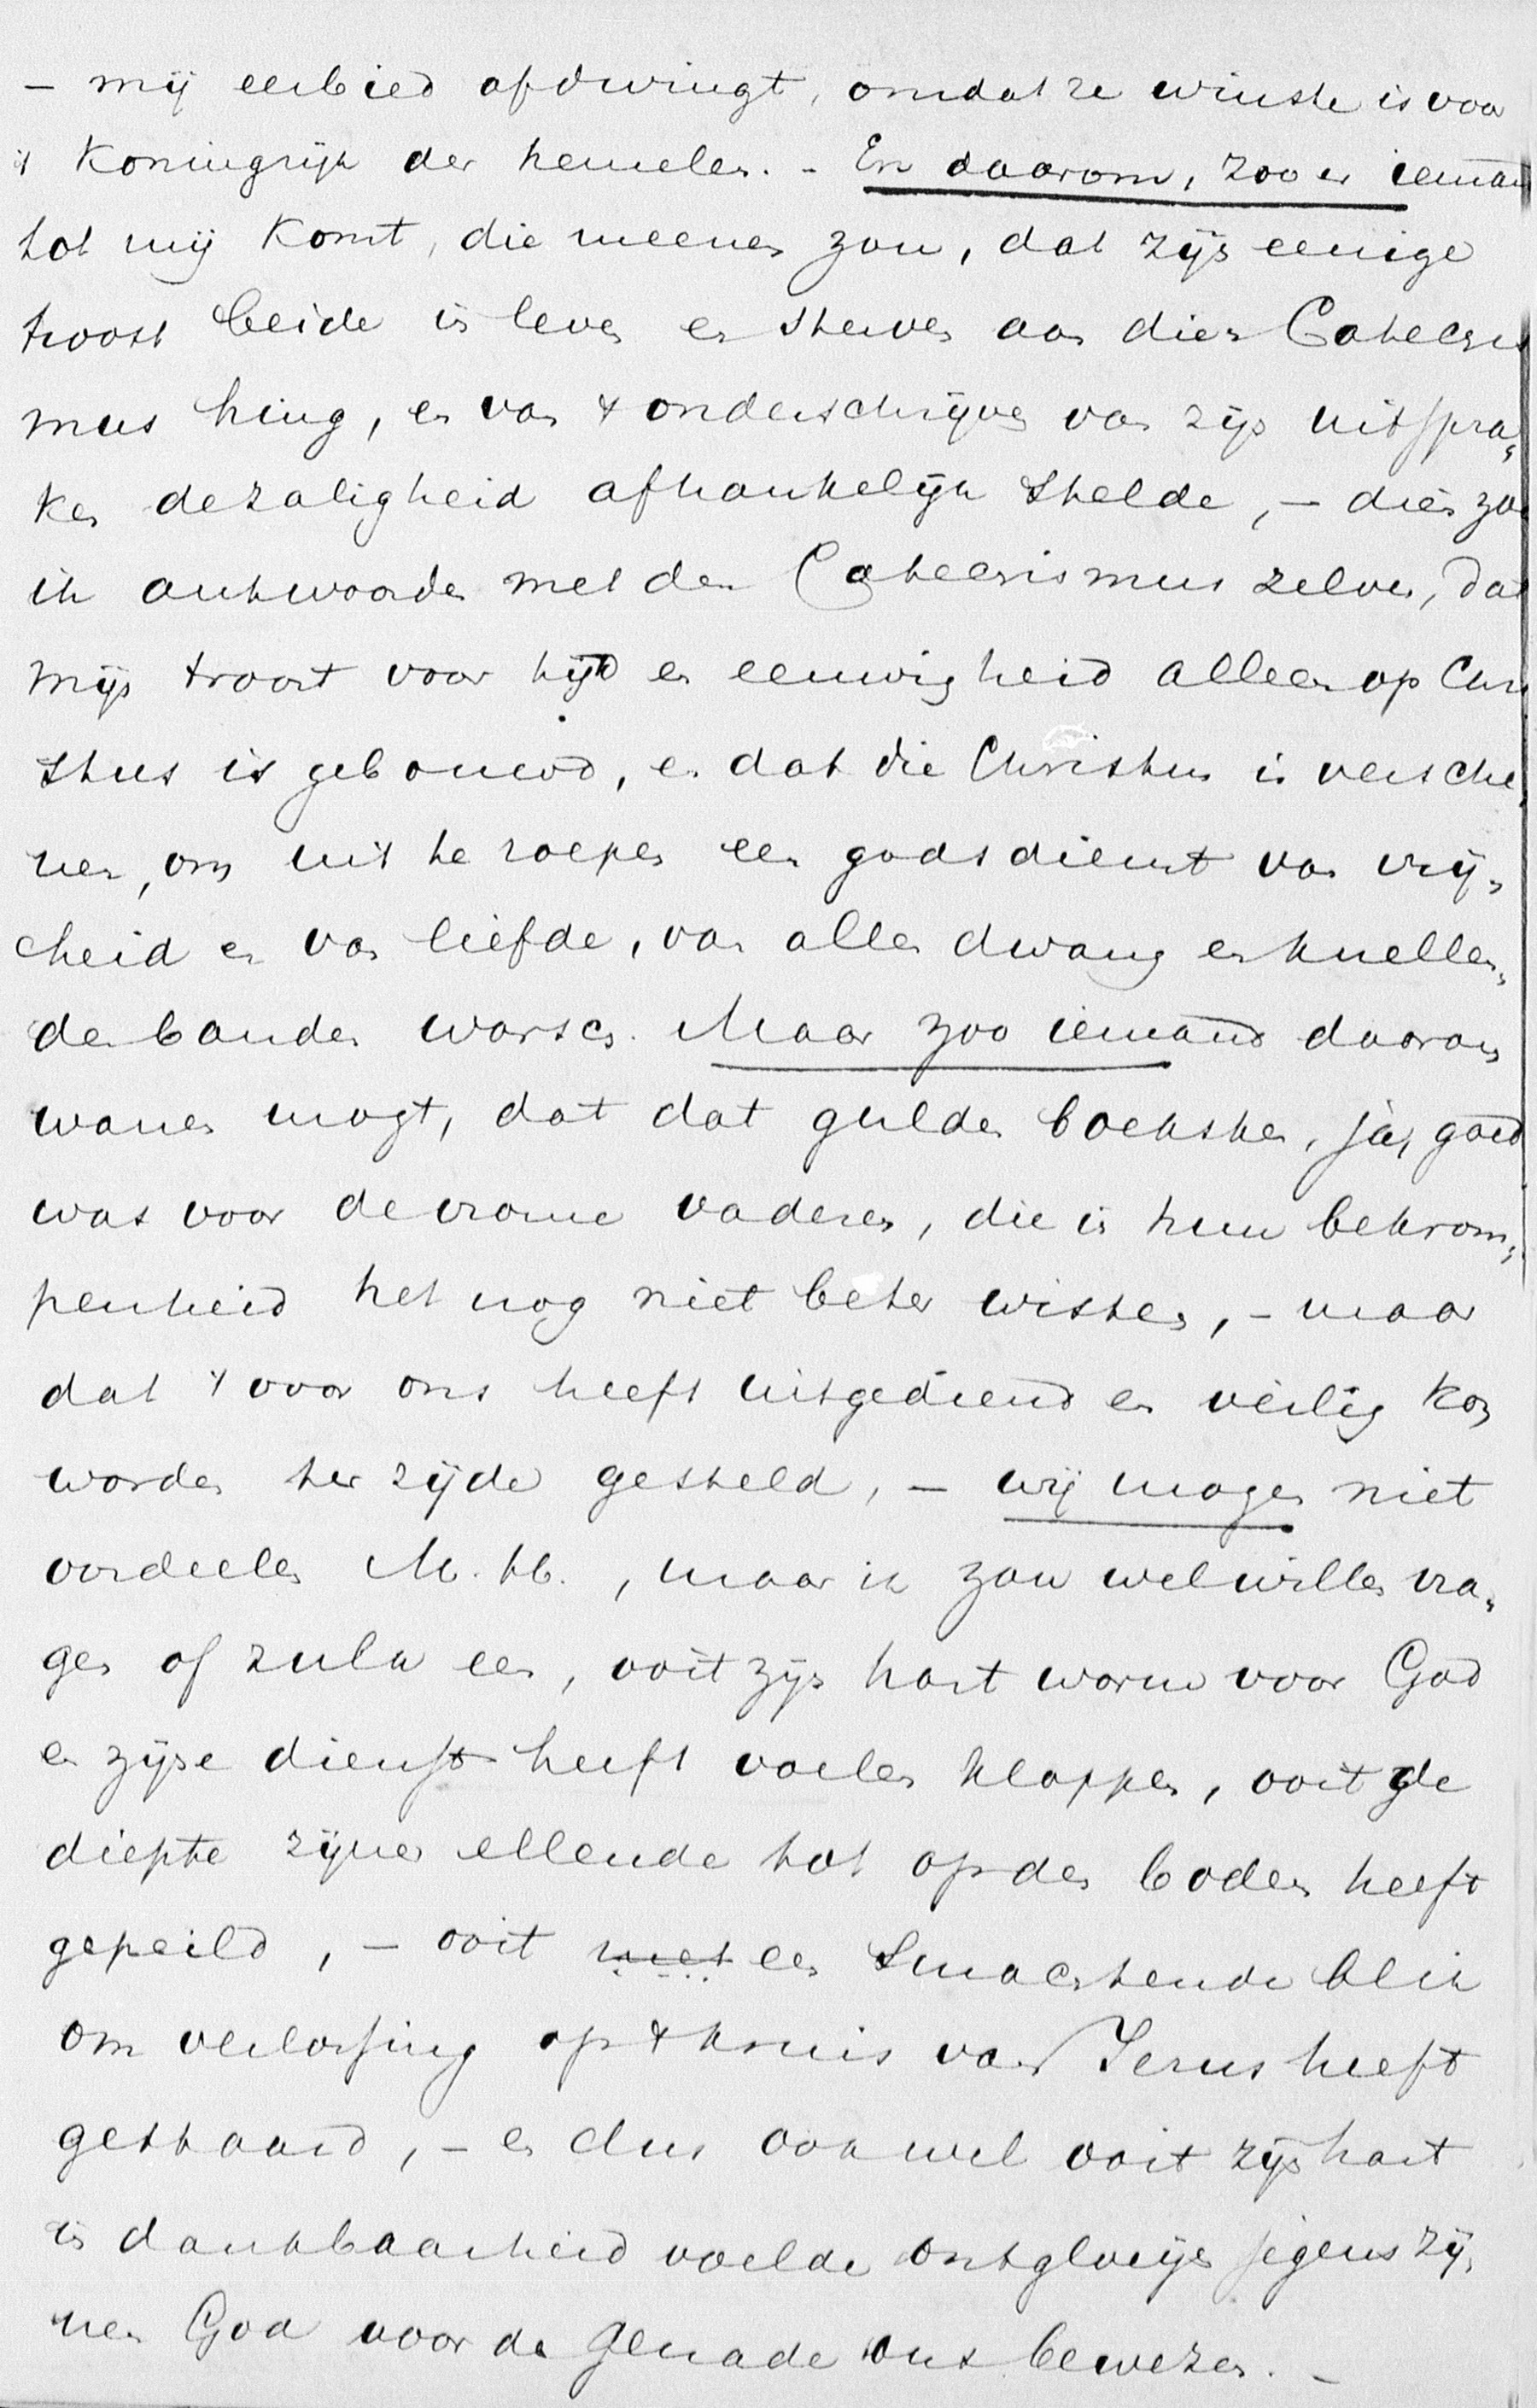 – mij eerbied afdwingt, omdat ze winste is voor
't Koningrijk der hemelen. – En daarom, zoo er iemand
tot mij komt, die meenen zou, dat zijn eenige
troost beide in leven en sterven aan dien Catechis
mus hing, en van 't onderschrijven van zijn uitspra„
ken de zaligheid afhankelijk stelde, – dien zou
ik antwoorden met den Catechismus zelven, dat
mijn troost voor tijd en eeuwigheid alleen op Chri
stus is gebouwd, en dat die Christus is versche„
nen, om uit te roepen een godsdienst van vrij„
heid en van liefde, van allen dwang en knellen„
de banden warsch. Maar zoo iemand daarom
wanen mogt, dat dat gulden boekske, ja, goed
was voor de vrome vaderen, die in hun bekrom„
penheid het nog niet beter wisten, – maar
dat 't voor ons heeft uitgediend en veilig kon
worden ter zijde gesteld, – wij mogen niet
oordeelen M. H., maar ik zou wel willen vra„
gen of zulk een, ooit zijn hart warm voor God
en zijne dienst heeft voelen kloppen, ooit de
diepte zijner ellende tot op den bodem heeft
gepeild, – ooit met een smachtende blik
om verlossing op 't kruis van Jezus heeft
gestaard, – en dus ook wel ooit zijn hart
in dankbaarheid voelde ontgloeijen jegens zij„
nen God voor de genade ons bewezen. –